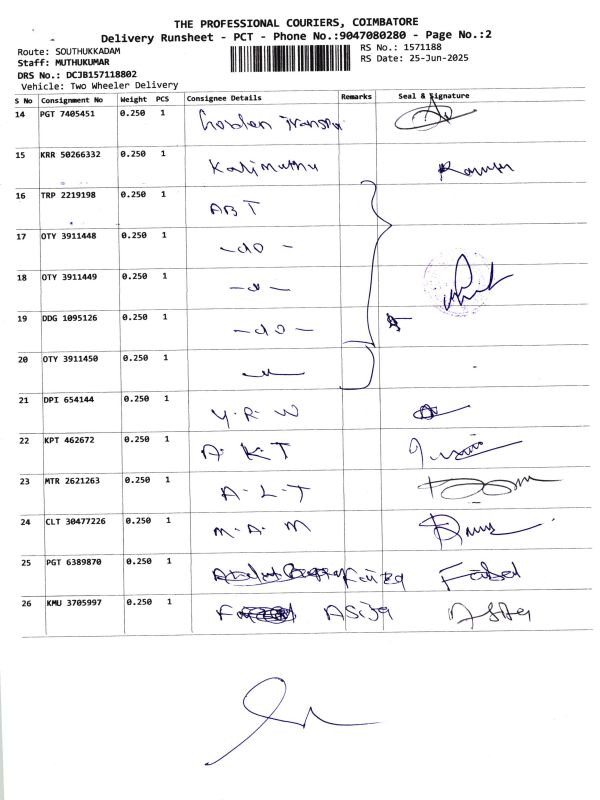 THE PROFESSIONAL COURIERS, COIMBATORE
Delivery Runsheet - PCT - Phone No.:9047080280 - Page No.:2
Route: SOUTHUKKADAM
RS No.: 1571188
Staff: MUTHUKUMAR
RS Date: 25-Jun-2025
DRS No.: DCJB157118802
Vehicle: Two Wheeler Delivery
S No Consignment No Weight PCS Consignee Details Remarks Seal & Signature
14 PGT 7405451 0.250 1
15 KRR 50266332 0.250 1 Kalimuthu
16 TRP 2219198 0.250 1 ABT
17 OTY 3911448 0.250 1 -do-
18 OTY 3911449 0.250 1
19 DDG 1095126 0.250 1 -do-
20 OTY 3911450 0.250 1
21 DPI 654144 0.250 1 Y.R.W
22 KPT 462672 0.250 1 A.K.T
23 MTR 2621263 0.250 1 A.L.T
24 CLT 30477226 0.250 1 M.A.M
25 PGT 6389870 0.250 1
26 KMU 3705997 0.250 1 ASija